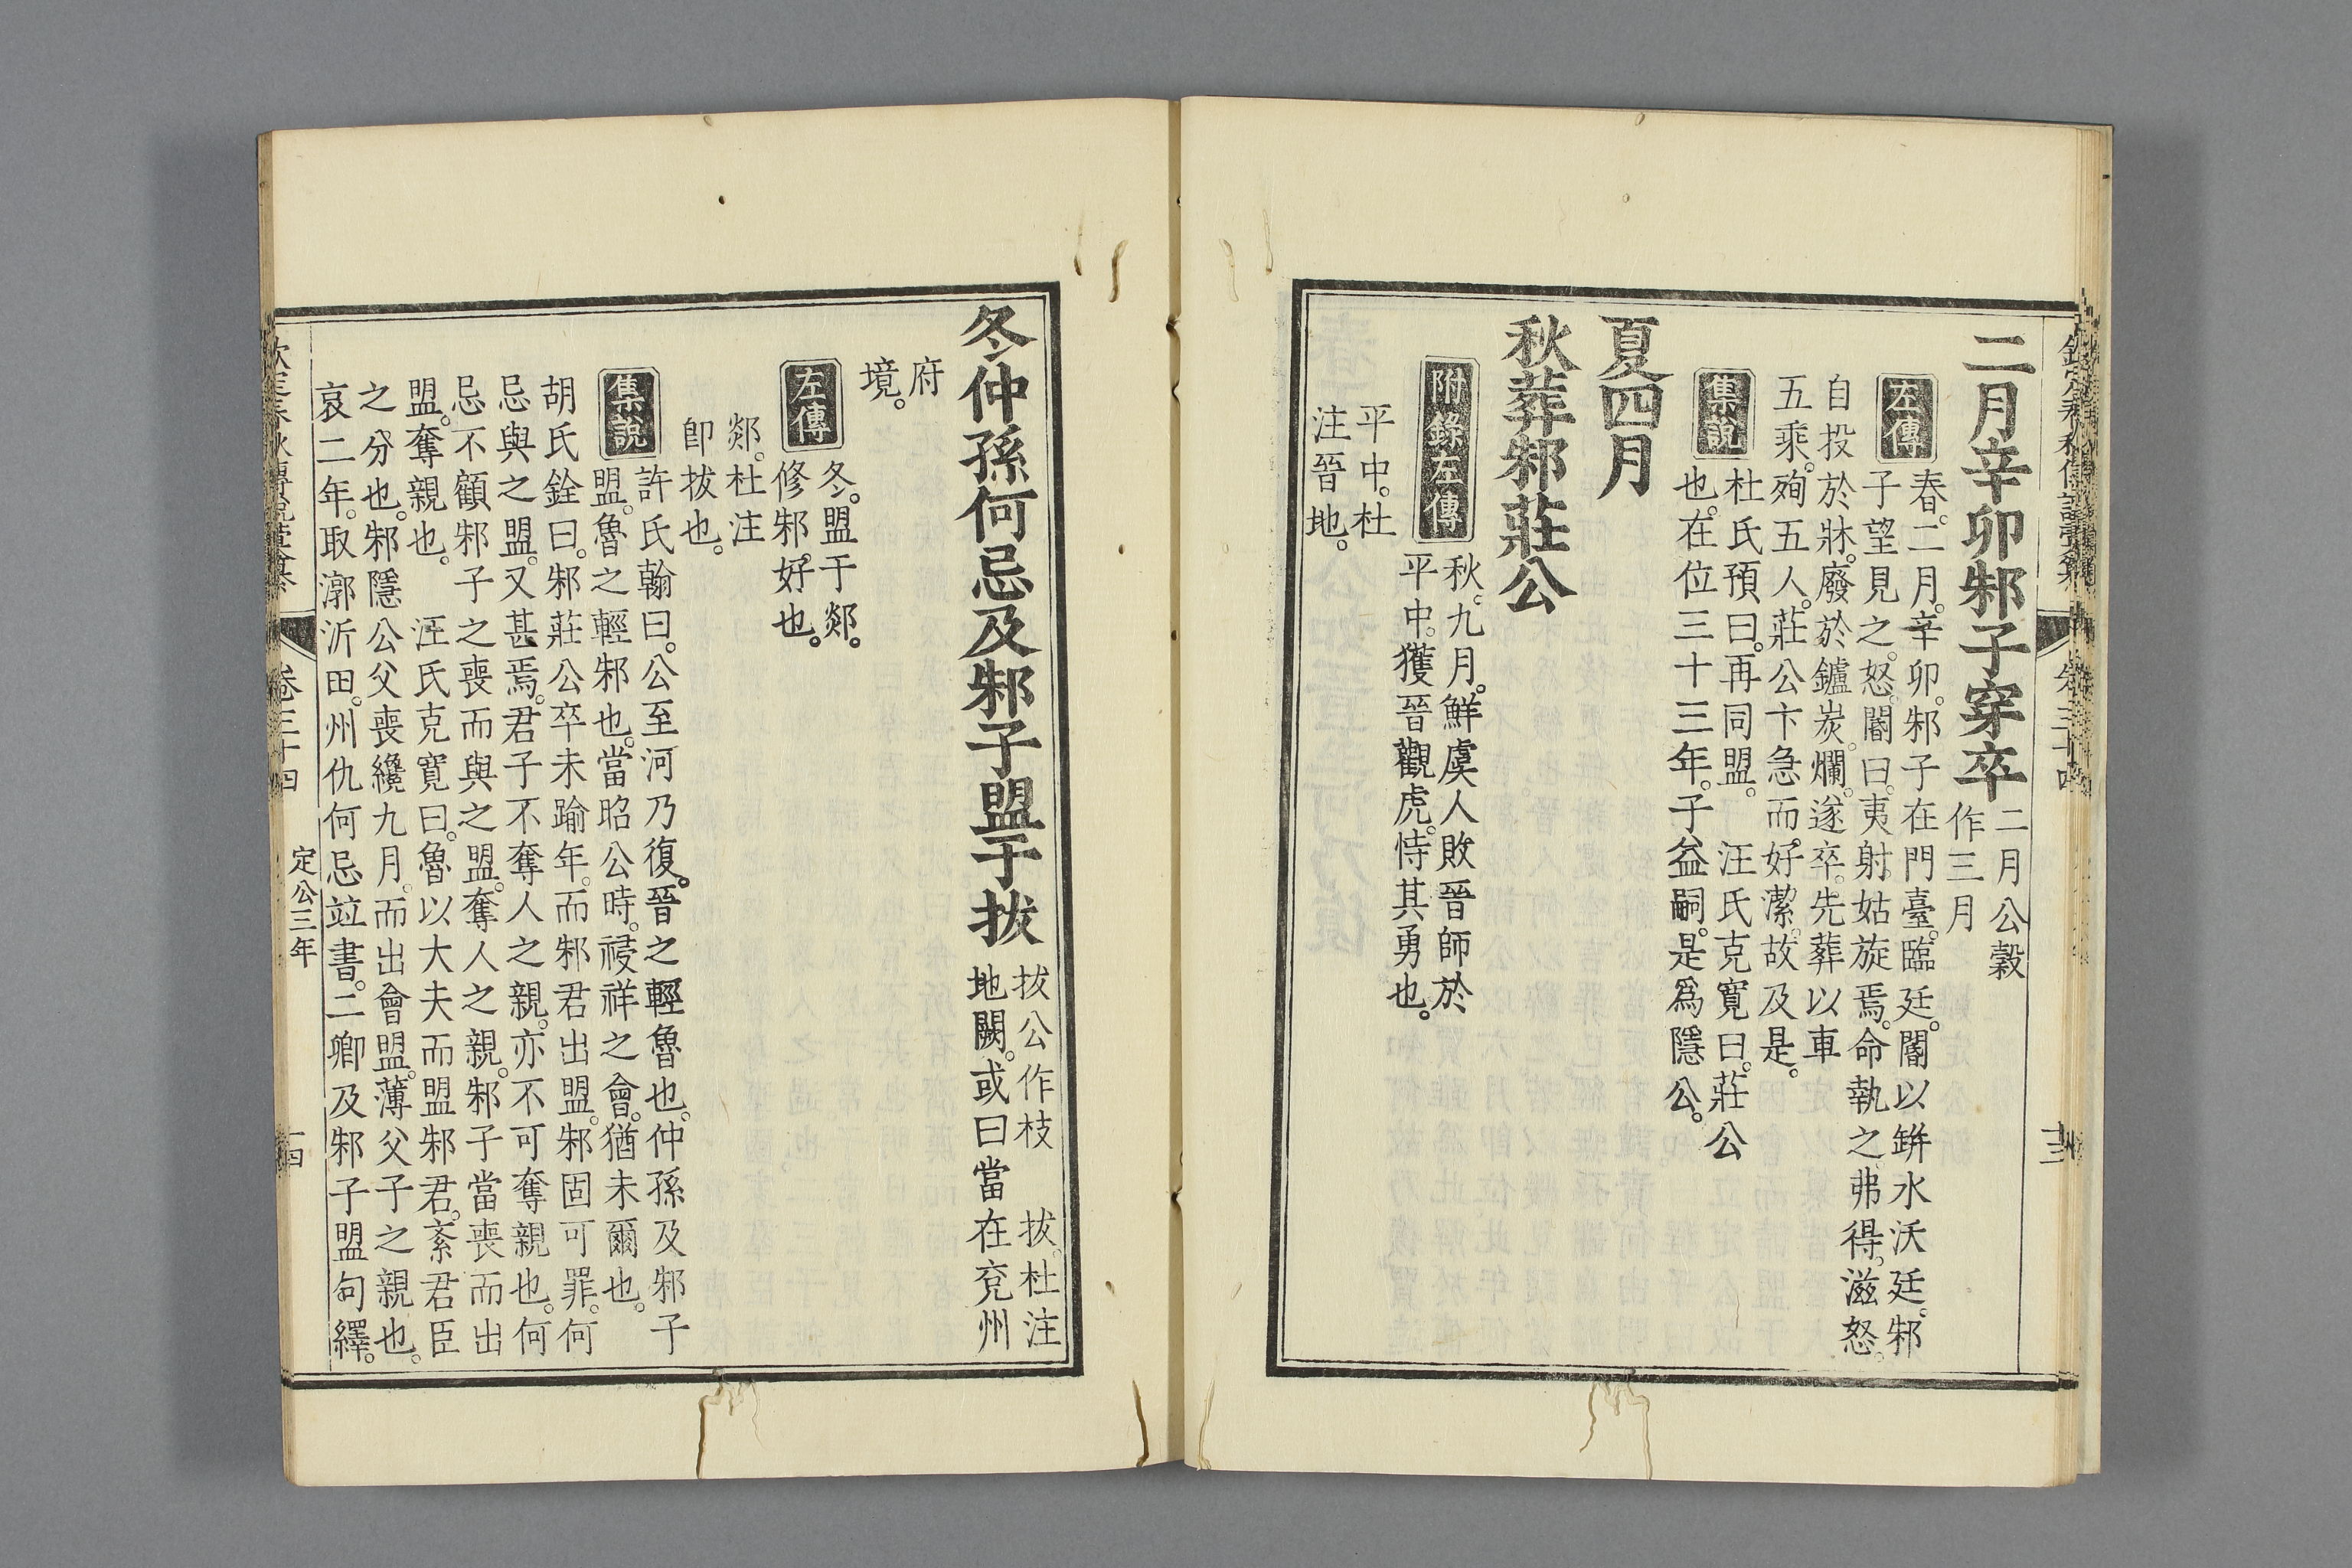 欽定春秋傳說彙纂
卷三十四
十三
二月辛卯邾子穿卒
二月公穀
作三月
左傳
春。二月。辛卯。邾子在門臺。臨廷。閽以缾水沃廷。邾
子望見之。怒。閽曰。夷射。姑旋焉。命執之。弗得。滋怒。
自投於牀。廢於鑪炭。爛。遂卒。先葬以車
五乘。殉五人。莊公卞急而好潔。故及是。
集說
杜氏預曰。再同盟。 汪氏克寬曰。莊公
也。在位三十三年。子益嗣。是爲隱公。
夏四月
秋葬邾莊公
附錄左傳
秋。九月。鮮虞人敗晉師於
平中。獲晉觀虎。恃其勇也。
平中。杜
注晉地。
冬仲孫何忌及邾子盟于拔
拔公作枝 拔。杜注
地闕。或曰當在兗州
府
境。
左傳
冬。盟于郯。
修邾。好也。
郯。杜注
卽拔也。
集說
許氏翰曰。公至河乃復。晉之輕魯也。仲孫及邾子
盟。魯之輕邾也。當昭公時。祲祥之會。猶未爾也。
胡氏銓曰。邾莊公卒未踰年。而邾君出盟。邾固可罪。何
忌與之盟。又甚焉。君子不奪人之親。亦不可奪親也。何
忌不顧邾子之喪而與之盟。奪人之親。邾子當喪而出
盟。奪親也。 汪氏克寬曰。魯以大夫而盟邾君。紊君臣
之分也。邾隱公父喪纔九月。而出會盟。薄父子之親也。
哀二年。取漷沂田。州仇何忌竝書。二卿及邾子盟句繹。
欽定春秋傳說彙纂
卷三十四
定公三年
十四